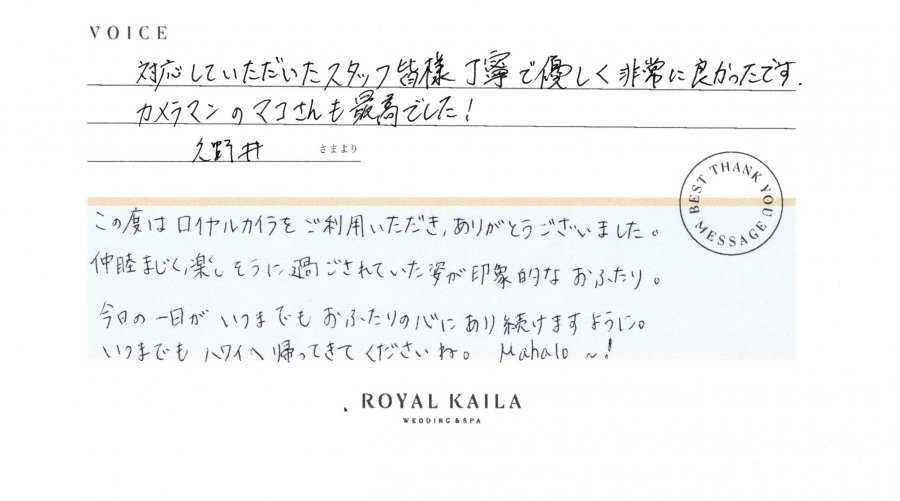 VOICE
対応していただいたスタッフ皆様丁寧で優しく非常に良かったです.
カメラマンのマコさんも最高でした!
久野井 さまより
BEST THANK YOU MESSAGE
この度はロイヤルカイラをご利用いただき,ありがとうございました。
仲睦まじく,楽しそうに過ごされていた姿が印象的なおふたり。
今日の一日がいつまでもおふたりの心にあり続けますように。
いつまでもハワイへ帰ってきてくださいね。 Mahalo ~!
ROYAL KAILA
WEDDING & SPA